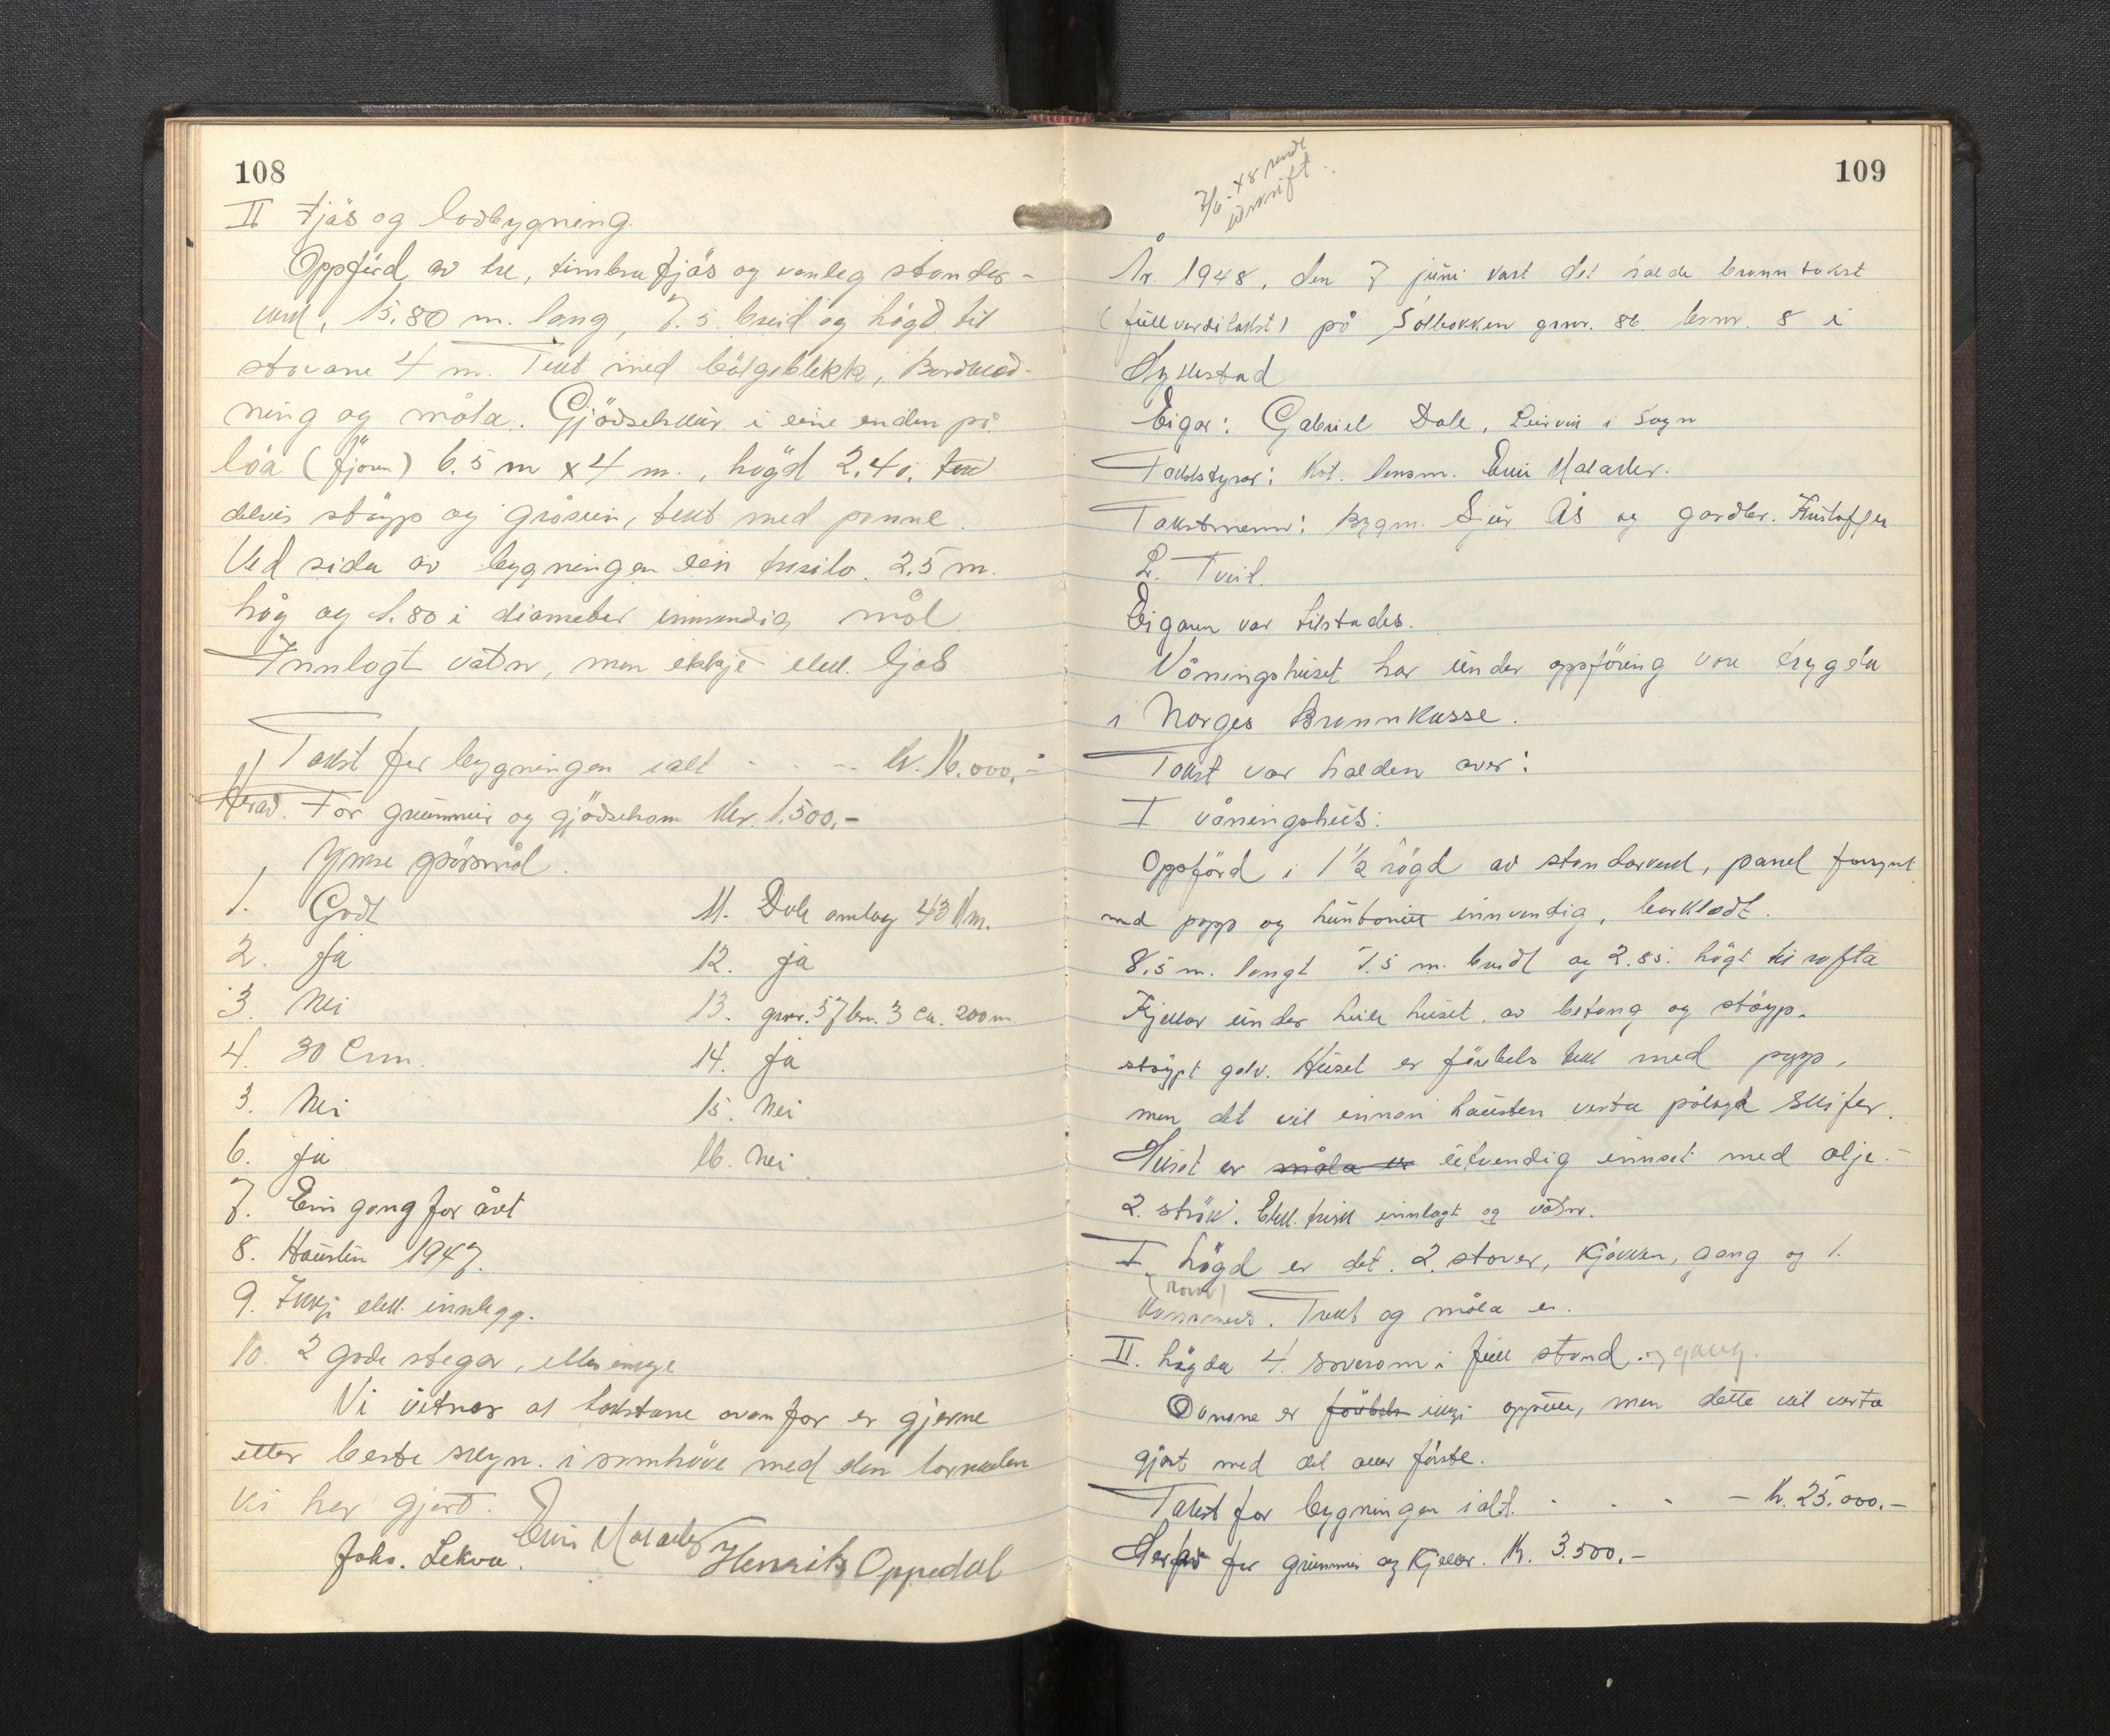 108
II Fjös og lödbygning.
Oppförd av tre, timbra fjös og vanleg stander-
verk, 15.80 m. lang, 7.5. breid og högd til
stavane 4 m. Tekt med bölgeblekk, Bordklæd-
ning og måla. Gjödselskur i eine enden på
löa (fjören) 6.5 m x 4 m., högd 2.40.
delvis stöyp og gråstein, tekt med panne.
Ved sida av bygningen ein tresilo. 2.5 m.
høg og 1.80 i diameter innvendig mål
Innlagt vatn, men ikkje elek. ljos
Takst for bygningen ialt - - -- kr. 16.000.-
Herav. For grunnmur og gjödselrom Kr. 1.500,-
Ymse spörsmål.
1. Godt
2. Ja
3. Nei
4. 30 Cm.
3. Nei
6. Ja
7. Ein gong for året
8. Hausten 1947.
9. Ikkje elek. innlegg.
10. 2 gode stegar, elles inkje
11. Dale omlag 43 Km.
12. Ja
13. gnr. 57 bn. 3 ca. 200 m
14. Ja
15. Nei
16. Nei
Vi vitnar at takstane ovanfor er gjerne
etter beste skyn. i samhöve med den lovnaden
vi har gjort.
Johs. Lekva. Henrik Oppedal
109
7/6-48 sendt
utskrift
År. 1948, den 7 juni vart det halde branntakst
(fullverditakst) på Solbakken gnr. 86 brnr. 8 i
Hyllestad
Eigar: Gabriel Dale, Leirvik i Sogn
Takststyrar: Kst. lensm.
Takstmenn: Bygm. Sjur Ås og gardbr. Kristoffer
L. Tveit.
Eigaren var tilstades.
Våningshuset har under oppföring vore trygda
i Norges Brannkasse.
Takst var halden over:
I våningshus:
Oppförd i 1½ högd av standarverk, panel forsynt
med papp og huntonitt innvendig, borklædt.
8.5 m. langt 7.5 m. breidt og 2.85. högt til rafta
Kjellar under heile huset. av betong og stöyp.
stöypt golv. Huset er förebels tekt med papp,
men det vil innan hausten verta pålagt skifer.
Huset er måla er utvendig innset med olje.-
2. strök. Elektrisk innlagt og vatn.
I högd er det. 2. stover, kjökken, gang og 1.
(rom)
kammers. Trekt og måla er.
II. högda 4. soverom i full stand. og gang.
Omnane er förebels ikkje oppsette, men dette vil verta
gjort med det aller förste.
Takst for bygningen ialt. - - - - Kr. 25.000.-
Herav for grunnmur og kjellar. Kr. 3.500.-